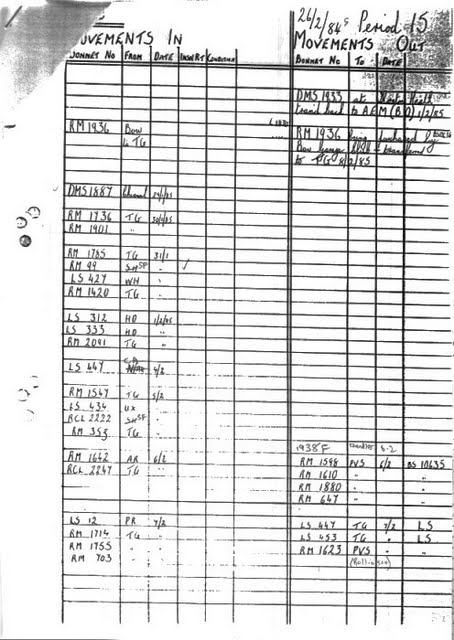 26/2/84s Period 15
MOVEMENTS IN
MOVEMENTS OUT
BONNET No FROM DATE INWRT CONDITION
BONNET No TO DATE
DMS 1933 at
back to AEM(BO) 1/2/85
RM 1936 Bow
to TG
RM 1936 being by
Bow garage transferred
to TG 8/2/85
DMS 1887
RM 1736 TG 30/1/85
RM 1901 "
RM 1785 TG 31/1
RM 99 SHSP " ✓
LS 427 WH "
RM 1420 TG "
LS 312 HD 1/2/85
LS 333 HD "
RM 2091 TG "
LS 447 4/2
RM 1547 TG 5/2
LS 434 UX "
RCL 2222 SHSP "
RM 353 TG "
1938F 5.2
RM 1642 AR 6/2
RCL 2247 TG "
RM 1598 PVS 6/2 BS 10635
RM 1610 " " "
RM 1880 " " "
RM 647 " " "
LS 12 PR 7/2
RM 1714 TG "
RM 1755 " "
RM 703 " "
LS 447 TG 7/2 LS
LS 453 TG " LS
RM 1623 PVS " "